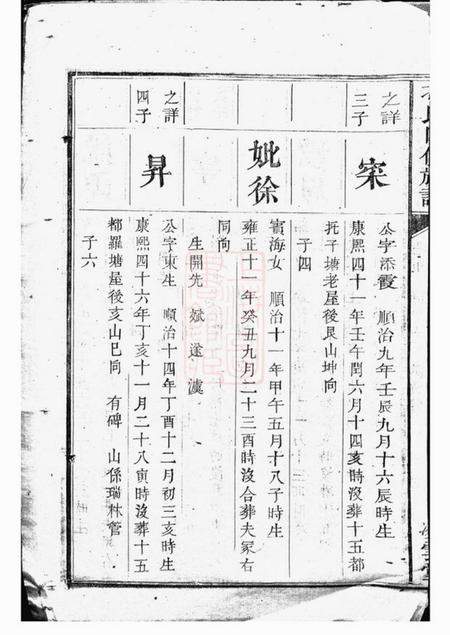 之詳
三子
寀
公字添霞 順治九年壬辰九月十六辰時生
康熙四十一年壬午閏六月十四亥時沒葬十五都
托子塘老屋後艮山坤向
子四
妣徐
賓海女 順治十一年甲午五月十八子時生
雍正十一年癸丑九月二十三酉時沒合葬夫冢右
同向
生開先 斌 遂 濵
之詳
四子
昇
公字東生 順治十四年丁酉十二月初三亥時生
康熙四十六年丁亥十一月二十八寅時沒葬十五
都羅塘屋後亥山巳向 有碑 山係瑞林管
子六